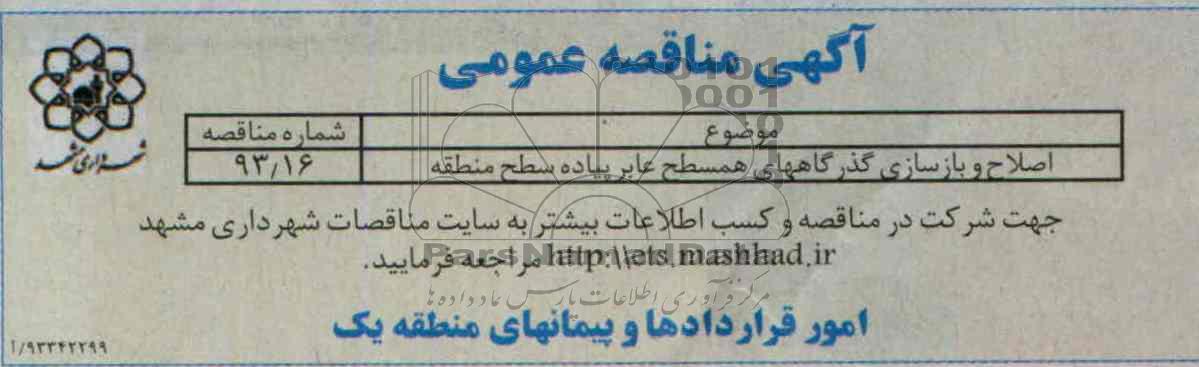 آگهی مناقصه عمومی
شهرداری مشهد
موضوع
شماره مناقصه
اصلاح و بازسازی گذرگاههای همسطح عابر پیاده سطح منطقه
۹۳/۱۶
جهت شرکت در مناقصه و کسب اطلاعات بیشتر به سایت مناقصات شهرداری مشهد
http:\\ets.mashhad.ir مراجعه فرمایید.
مرکز فرآوری اطلاعات پارس نماد داده ها
امور قراردادها و پیمانهای منطقه یک
۱/۹۳۳۴۲۲۹۹